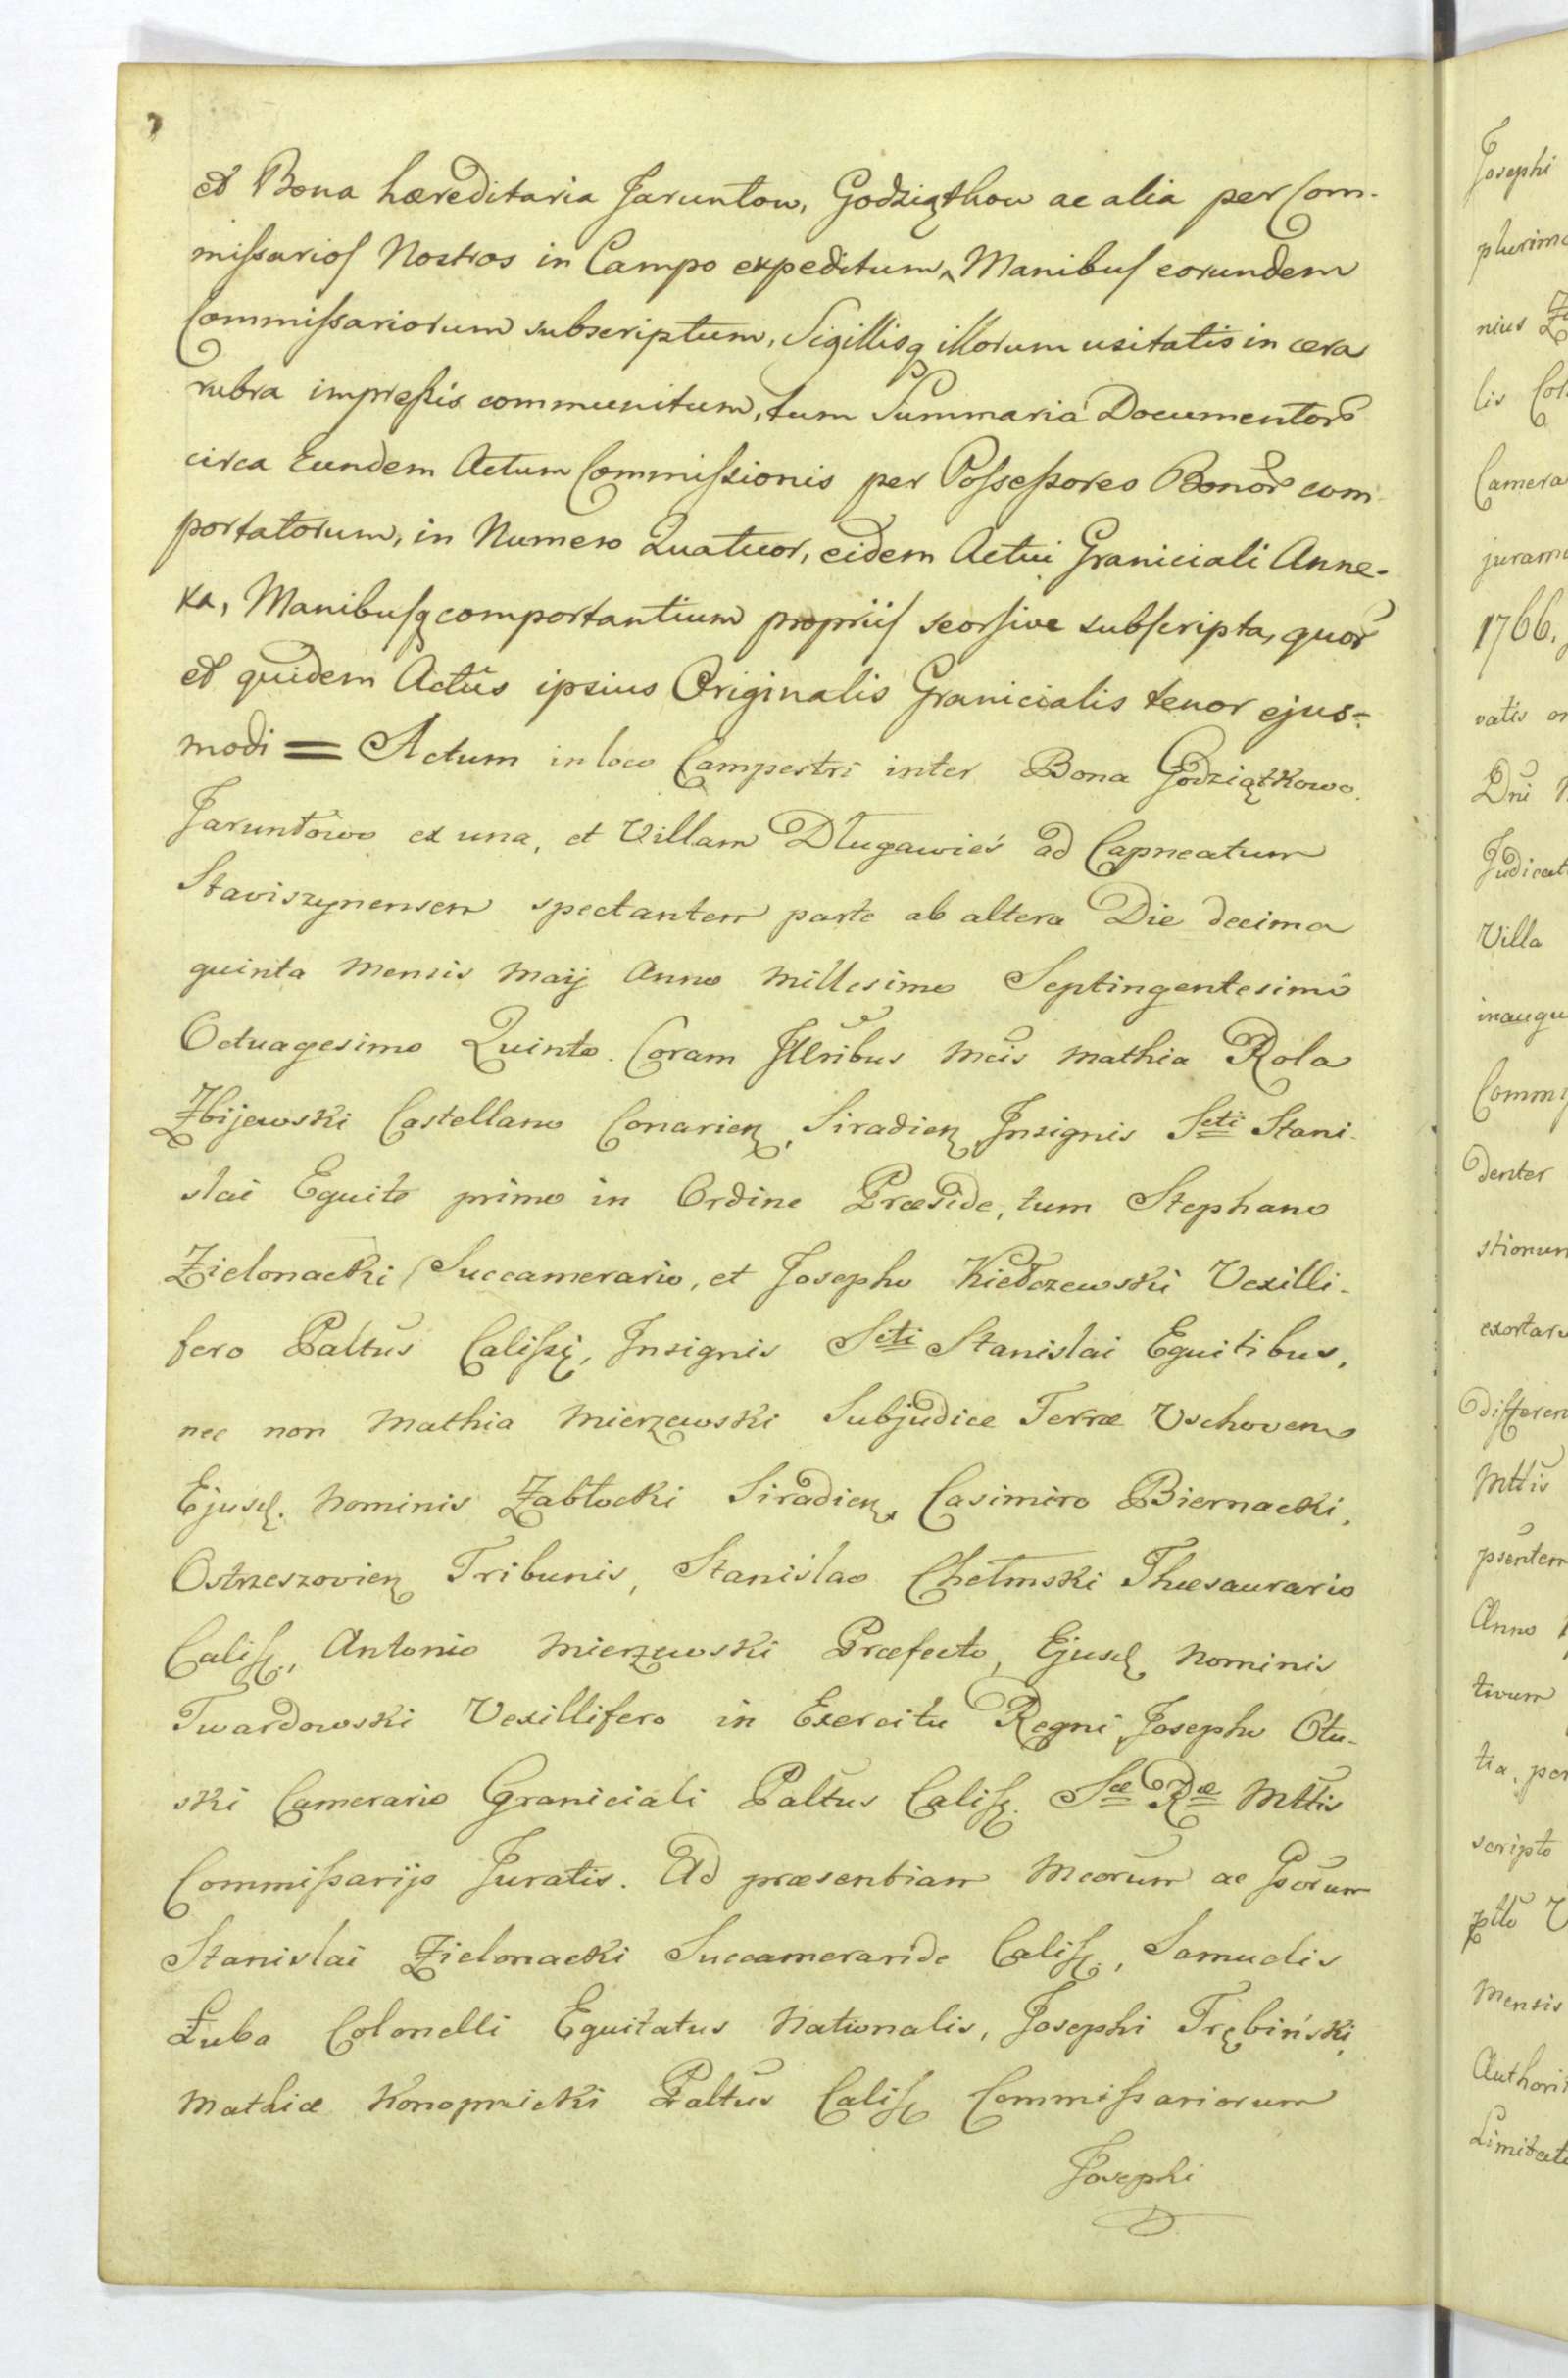 et Bona hæreditaria Jaruntow, Godziąthow ac alia per Com-
missarios Nostros in Campo expeditum, Manibus eorundem
Commissariorum subscriptum, Sigillisq illorum usitatis in cera
rubra impressis communitum, tum Summaria Documentor
circa Eundem Actum Commissionis per Possessores Bonor com
portatorum, in Numero Quatuor, eidem Actui Graniciali Anne-
xa, Manibusq comportantium propriis seorsive subscripta, quor
et quidem Actus ipsius Originalis Granicialis tenor ejus=
modi = Actum in loco Campestri inter Bona Godziątkowo
Jaruntowo ex una, et Villam Długawieś ad Capneatum
Staviszynensem spectantem parte ab altera Die decima
quinta Mensis Maij Anno Millesimo Septingentesimo
Octuagesimo Quinto. Coram Illribus Mcis Mathia Rola
Zbijewski Castellano Conarien, Siradien Insignis Scti Stani-
slai Equite primo in Ordine Præside, tum Stephano
Zielonacki Succamerario, et Josepho Kiełczewski Vexilli-
fero Paltus Calissi, Insignis Scti Stanislai Equitibus,
nec non Mathia Mierzewski Subjudice Terræ Vschovens
Ejusd. Nominis Zabłocki Siradien, Casimiro Biernacki,
Ostrzeszovien Tribunis, Stanislao Chełmski Thesaurario
Caliss., Antonio Mierzewski Præfecto, Ejusd Nominis
Twardowski Vexillifero in Exercitu Regni, Josepho Otu-
ski Camerario Graniciali Paltus Caliss. Sæ Ræ Mttis
Commissarijs Juratis. Ad præsentiam Mcorum ac Gsorum
Stanislai Zielonacki Succameraride Caliss., Samuelis
Łuba Colonelli Equitatus Nationalis, Josephi Trębiński,
Mathiæ Konopnicki Paltus Caliss Commissariorum
Josephi
Josephi
plurim
nius
lis
Camera
juram
1766.
vatis
Dni
Judicat
Villa
inaugu
Commi
denter
stionum
exortar
differen
Mttis
psentem
Anno
tivum
tia, per
scripto
Mensis
Authori
Limitat